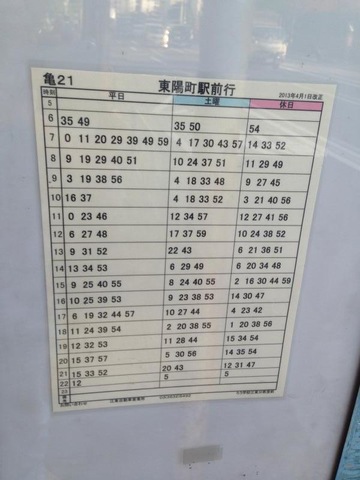 亀21 東陽町駅前行 2013年4月1日改正
時刻 平日 土曜 休日
5
6 35 49 35 50 54
7 0 11 20 29 39 49 59 4 17 30 43 57 14 33 52
8 9 19 29 40 51 10 24 37 51 11 29 49
9 3 19 38 56 4 18 33 48 9 27 45
10 16 37 4 18 33 52 3 21 40 56
11 0 23 46 12 34 57 12 27 41 56
12 6 27 48 17 37 59 10 24 38 52
13 9 31 52 22 43 6 21 36 51
14 13 34 53 6 29 49 6 20 34 48
15 9 25 40 55 8 24 40 55 2 16 30 44 59
16 10 25 39 53 9 23 38 53 14 30 47
17 6 19 32 44 57 10 27 44 4 23 42
18 11 24 39 54 2 20 38 55 1 20 38 56
19 12 32 53 11 28 44 15 34 54
20 15 37 57 5 30 56 14 35 54
21 15 33 52 20 43 12 31 47
22 12 5 5
23